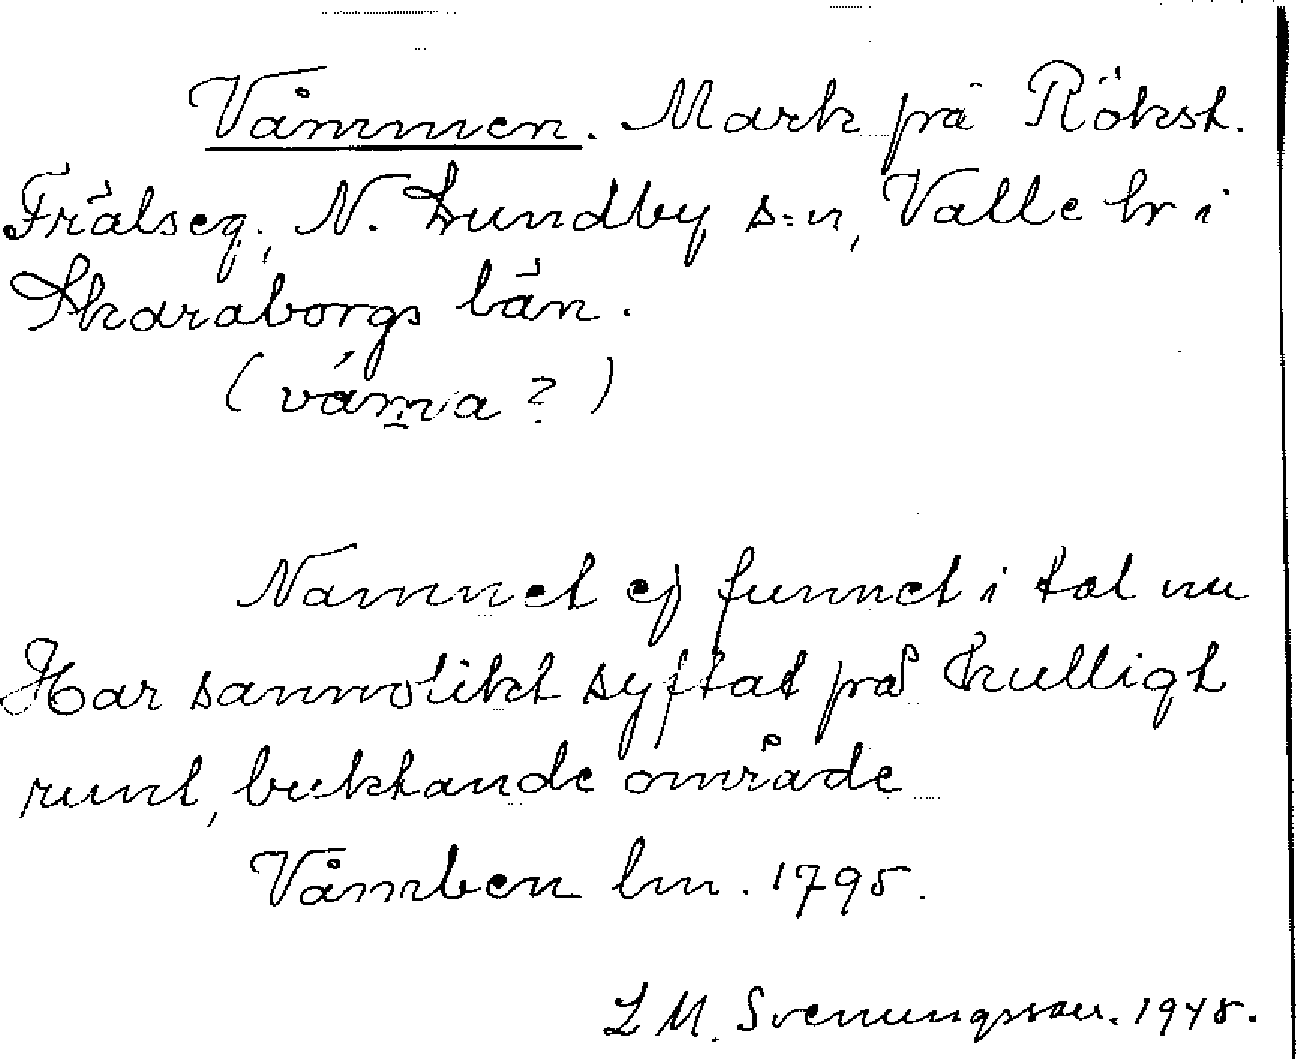 Våmmen. Mark på Rökst.
Frälseg., N. Lundby s:n, Valle hr i
Skaraborgs län.
( ? )
Namnet ej funnet i tal nu
Har sannolikt syftat på kulligt
runt, buktande område
Våmben lm. 1795.
L M. Svenungsson. 1948.